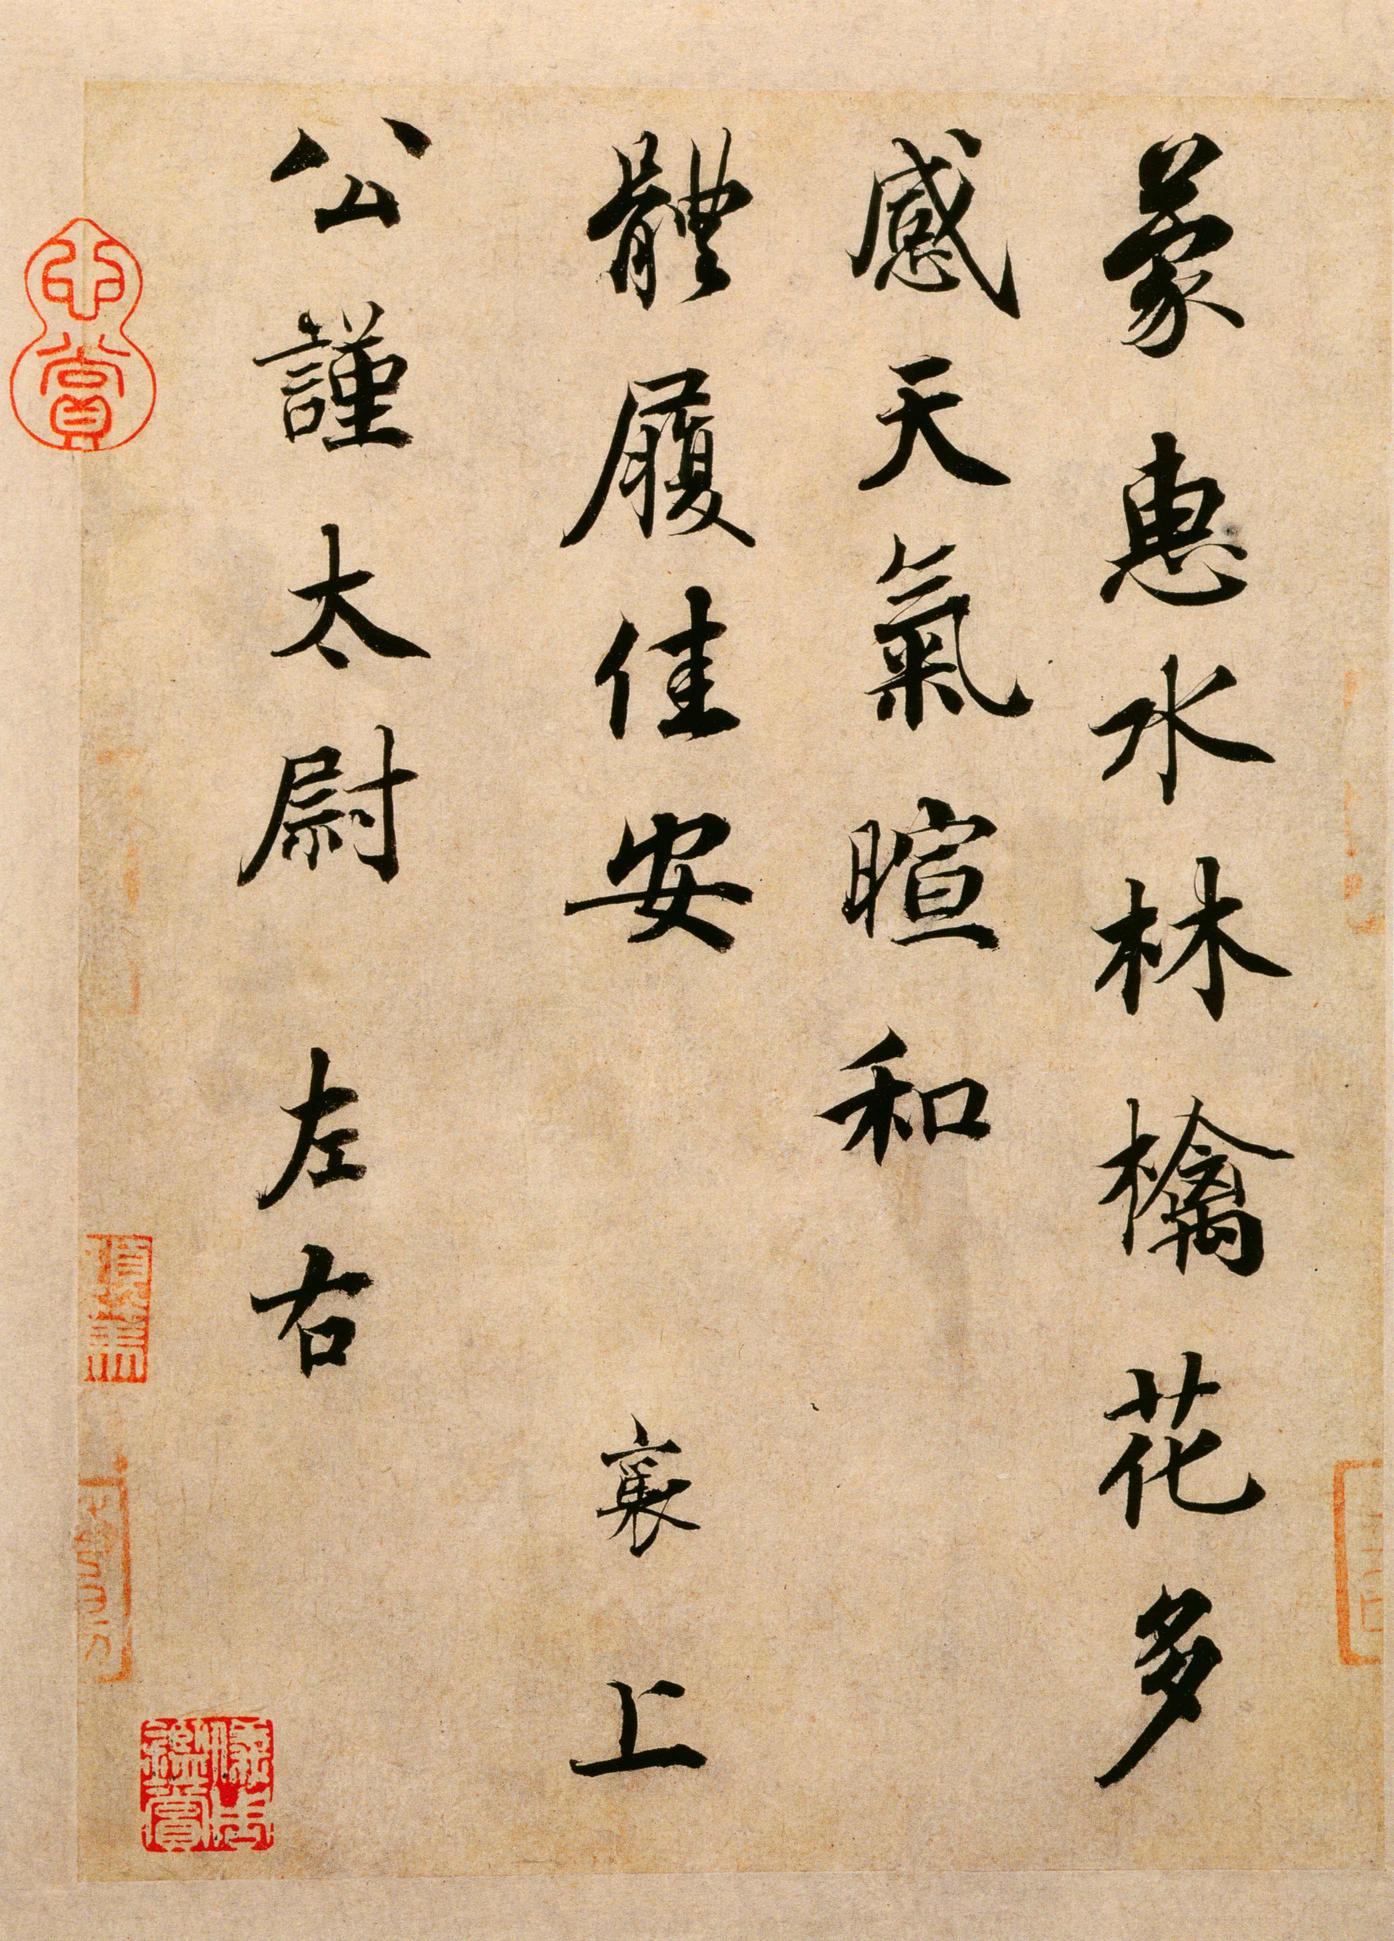 蒙惠水林檎花多
感天氣暄和
體履佳安 襄上
公謹太尉 左右
心賞
儀周鑑賞